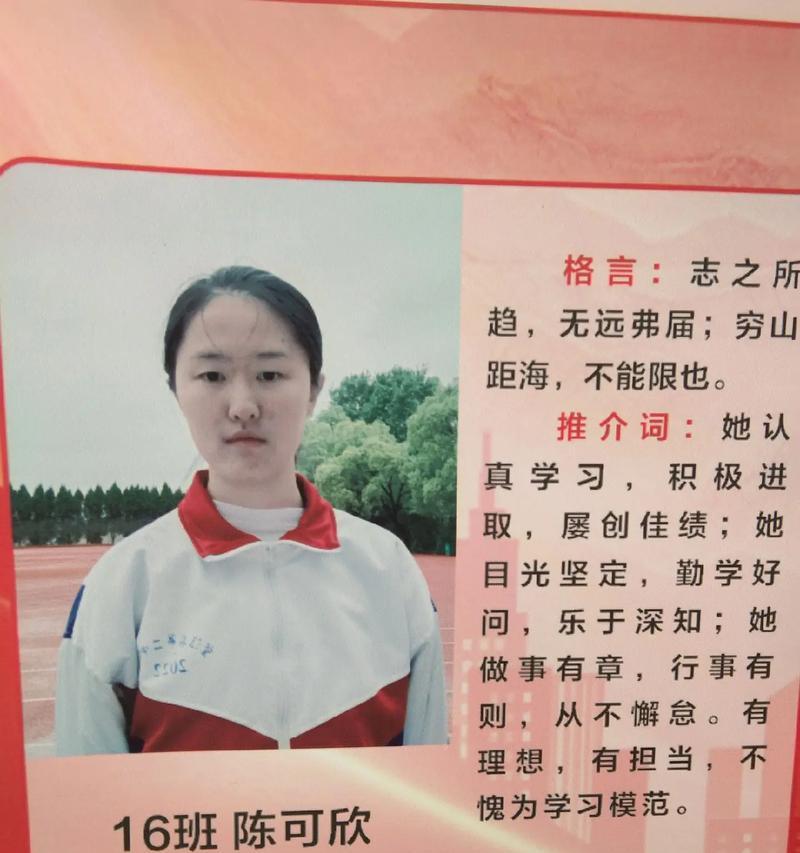 格言：志之所
趋，无远弗届；穷山
距海，不能限也。
推介词：她认
真学习，积极进
取，屡创佳绩；她
目光坚定，勤学好
问，乐于深知；她
做事有章，行事有
则，从不懈怠。有
理想，有担当，不
愧为学习模范。
2022
16班 陈可欣